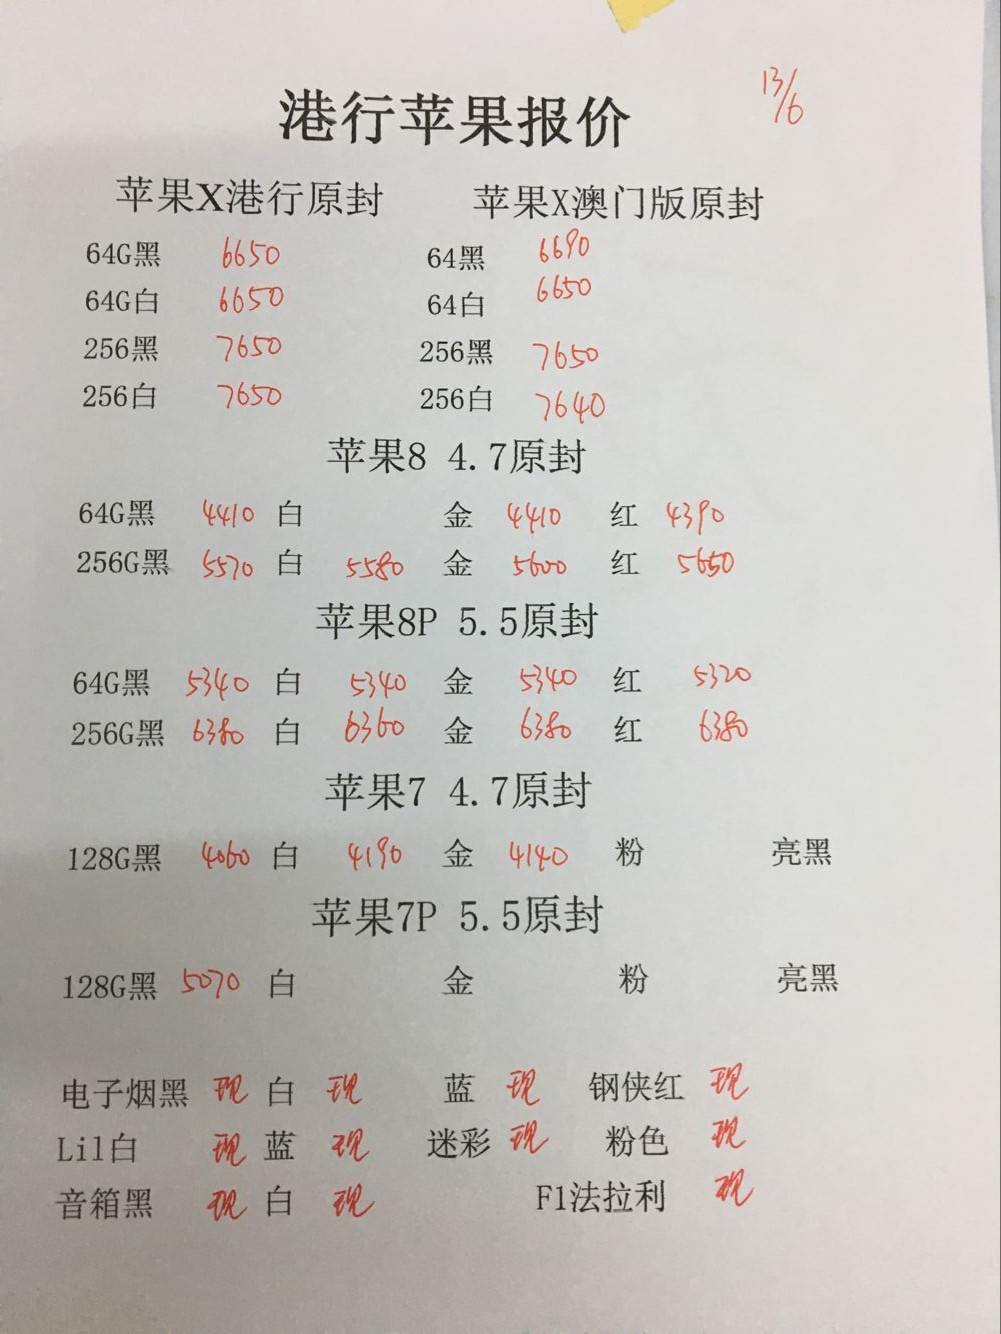 13/6
港行苹果报价
苹果X港行原封 苹果X澳门版原封
64G黑 6650 64黑 6690
64G白 6650 64白 6650
256黑 7650 256黑 7650
256白 7650 256白 7640
苹果8 4.7原封
64G黑 4410 白 金 4410 红 4390
256G黑 5570 白 5580 金 5600 红 5650
苹果8P 5.5原封
64G黑 5340 白 5340 金 5340 红 5320
256G黑 6380 白 6360 金 6380 红 6380
苹果7 4.7原封
128G黑 4060 白 4190 金 4140 粉 亮黑
苹果7P 5.5原封
128G黑 5070 白 金 粉 亮黑
电子烟黑 现 白 现 蓝 现 钢侠红 现
Lil白 现 蓝 现 迷彩 现 粉色 现
音箱黑 现 白 现 F1法拉利 现